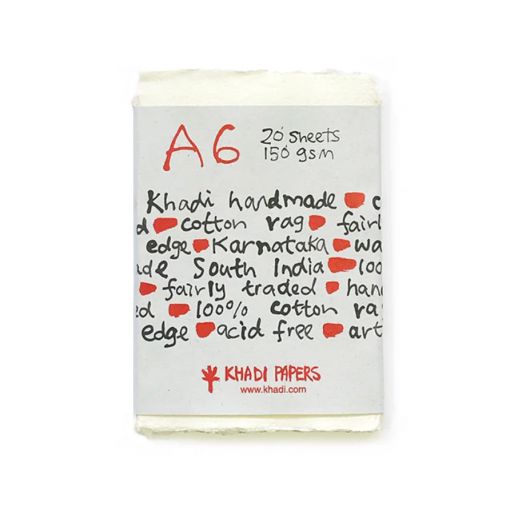 A6 20 sheets
150 gsm
Khadi handmade c
d cotton rag fairl
edge Karnataka wa
ade South India 100
fairly traded han
ed 100% cotton ra
edge acid free art
KHADI PAPERS
www.khadi.com